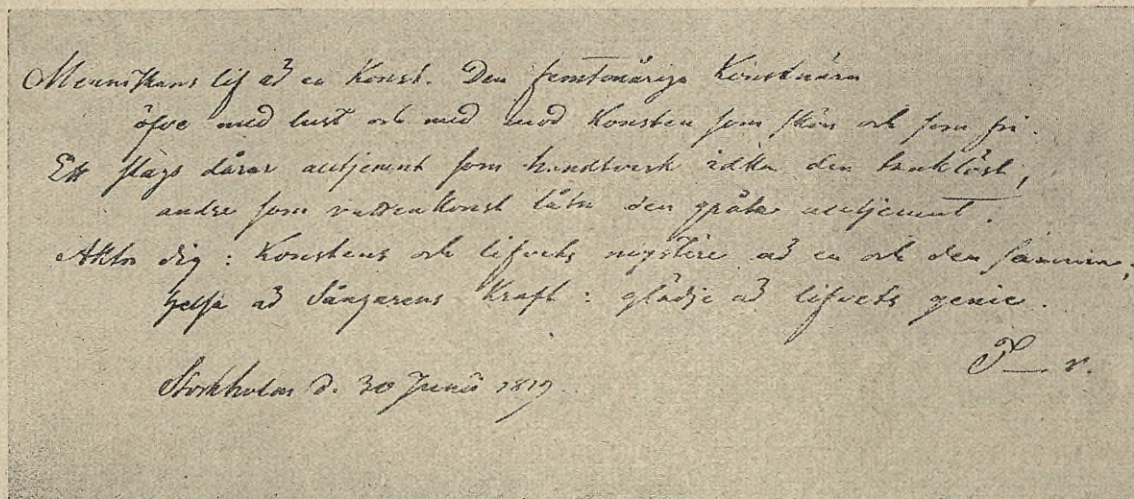 Menniskans lif är en Konst. Den femtonåriga Konstnärn
öfve med lust och med mod Konsten som skön och som fri.
Ett slags dårar alltjemnt som handtverk idka den tanklöst,
andre som vattenkonst låta den gråta alltjemnt.
Akta dig: Konstens och lifvets mystère är en och den samma;
helsa är Sångarens Kraft: glädje är lifvets genie.
T— r.
Stockholm d. 30 Junii 1819